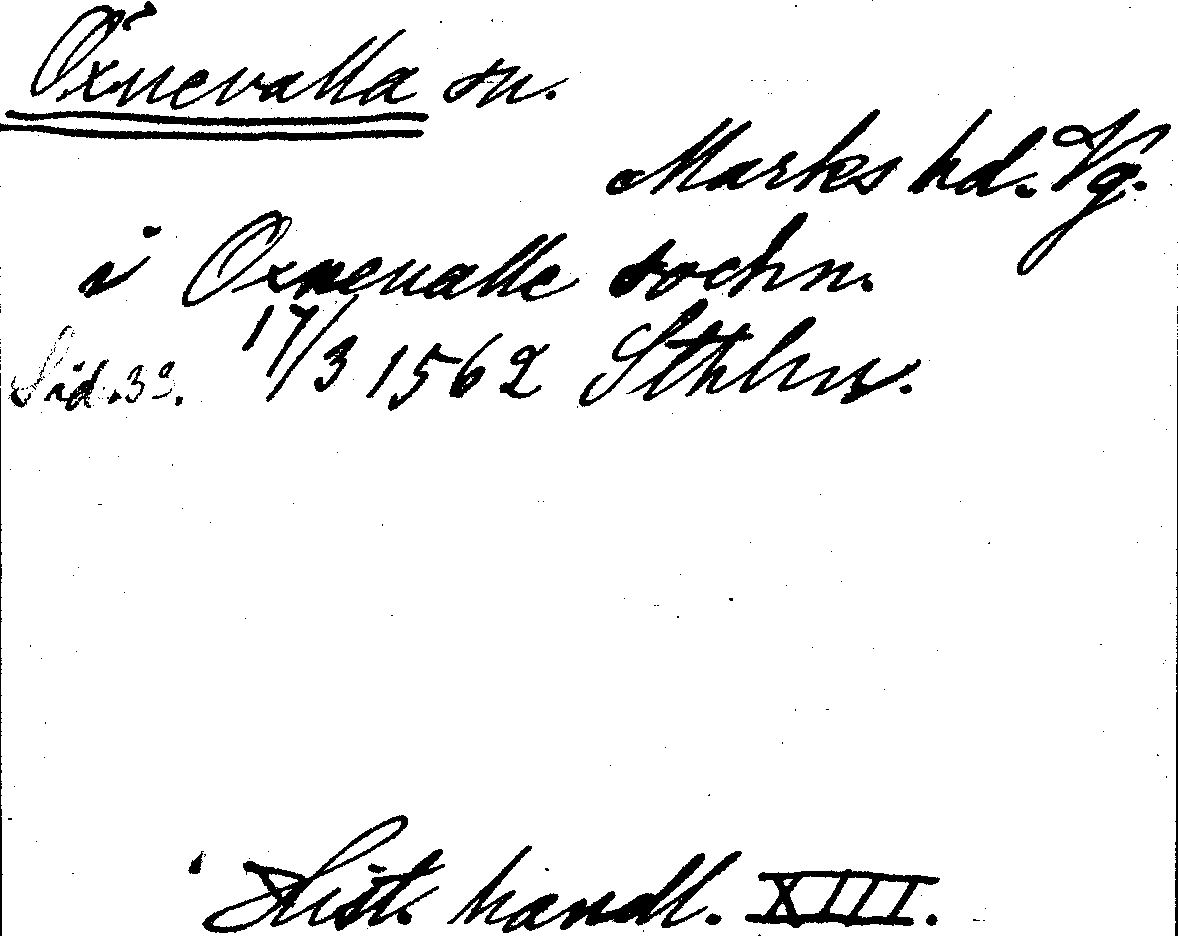 Öxnevalla sn.
Marks hd. Vg.
i Oxnevalle sochn.
Sid. 33. 17/3 1562 Sthlm.
Hist. handl. XIII.